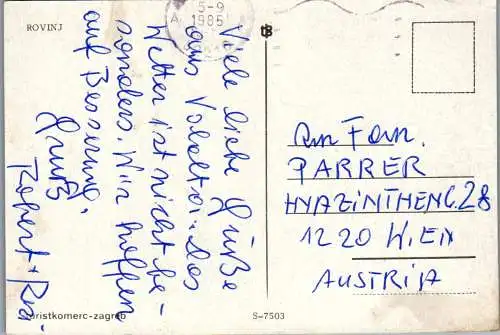 ROVINJ
5-9
1985
Viele liebe Grüße
aus Valalta. Das
Wetter ist nicht be-
sonders. Wir hoffen
auf Besserung.
Gruß
Robert +
An Fam.
PARRER
HYAZINTHENG. 28
1220 WIEN
AUSTRIA
turistkomerc-zagreb
S-7503